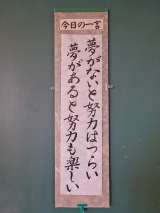 今日の一言
夢がないと努力はつらい
夢があると努力も楽しい